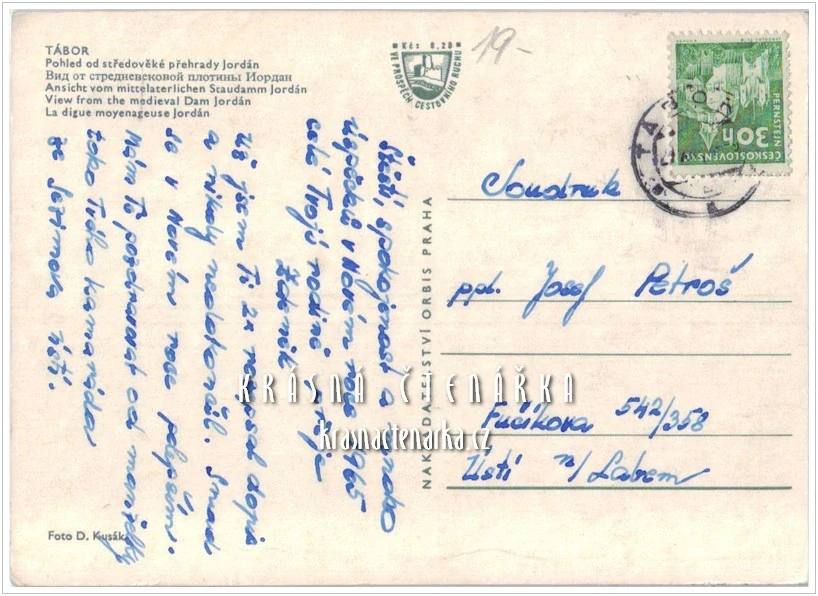 TÁBOR
Pohled od středověké přehrady Jordán
Вид от стредневековой плотины Иордан
Ansicht vom mittelaterlichen Staudamm Jordán
View from the medieval Dam Jordán
La digue moyenageuse Jordán
Kčs 0,20
VE PROSPĚCH CESTOVNÍHO RUCHU
19-
PERNŠTEJN
30h
ČESKOSLOVENSKO
Štěstí, spokojenost a mnoho
úspěchů v Novém roce 1965
celé Tvojí rodině přeje
Zdeněk
Už jsem Ti 2x napsal dopis
a nikdy nedokončil. Snad
se v Novém roce polepším.
Mám Tě pozdravovat od manželky
toho Tvého kamaráda
ze Sezimova Ústí.
NAKLADATELSTVÍ ORBIS PRAHA
Soudruh
pplk. Josef Petroš
Fučíkova 542/358
Ústí n/Labem
KRÁSNÁ ČTENÁŘKA
krasnactenarka.cz
Foto D. Kusák